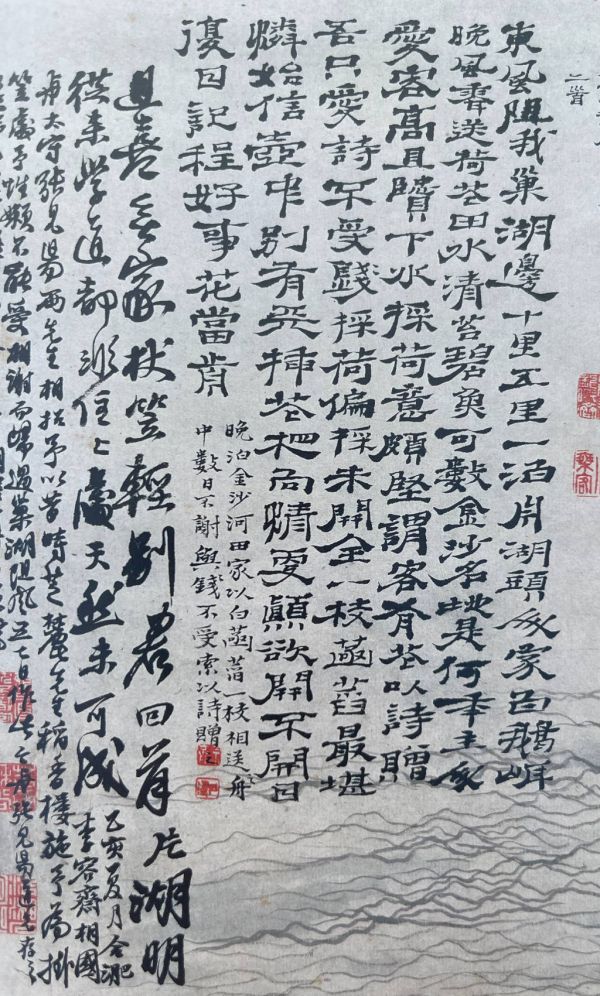 二首
東風阻我巢湖邊十里五里一泊舟湖頭人家白鵝岸
晚風齊送荷花田水清苔碧魚可數金沙名地是何年主人
愛客高且贒下水採荷意頗堅謂客有花以詩贈
吾只愛詩不愛錢採荷偏採未開全一枝菡萏最堪
憐始信壺中別有天揷花相向情更顛欲開不開日
復日記程好事花當前
晚泊金沙河田家以白菡萏一枝相送舟
中數日不謝與錢不受索以詩贈
且喜無家杖笠輕別君回首片湖明
從來學道都非住住處天然未可成
乙亥夏月合淝
李容齋相國
與太守張見陽兩先生相招予以昔時芝麓先生稻香樓施予為掛
笠處予性懶不能受相謝而歸過巢湖阻風五日作